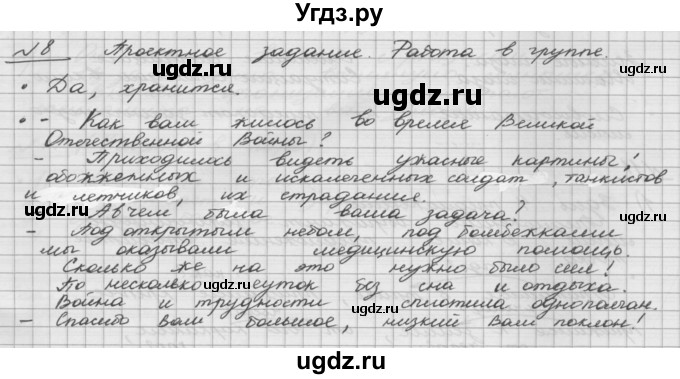 Угдз.ру
№8 Проектное задание. Работа в группе.
ugdz.ru ugdz.ru
• Да, хранится.
ugdz.ru
• - Как вам жилось во время Великой
Отечественной Войны?
- Приходилось видеть ужасные картины:
обожженных и искалеченных солдат, танкистов
и летчиков, их страдания.
ugdz.ru ugdz.ru
- А в чем была ваша задача?
- Под открытым небом, под бомбежками
мы оказывали медицинскую помощь.
Сколько же на это нужно было сил!
По несколько суток без сна и отдыха.
ugdz.ru
Война и трудности сплотила однополчан.
ugdz.ru
- Спасибо Вам большое, низкий Вам поклон!
ugdz.ru